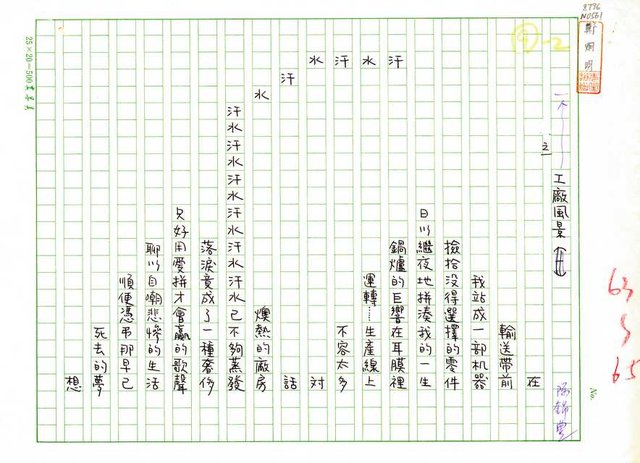 8776
N0561
鄭烱明
④-2
之
工廠風景
在
輸送帶前
我站成一部机器
撿拾沒得選擇的零件
日以繼夜地拼湊我的一生
汗 鍋爐的巨響在耳膜裡
水 運轉……生產線上
汗 不容太多
水 對
汗 話
水 燠熱的廠房
汗水汗水汗水汗水汗水汗水已不夠蒸發
落淚竟成了一種奢侈
只好用愛拼才會贏的歌聲
聊以自嘲悲慘的生活
順便憑弔那早已
死去的夢
想
63
5
65
No.
25×20=500